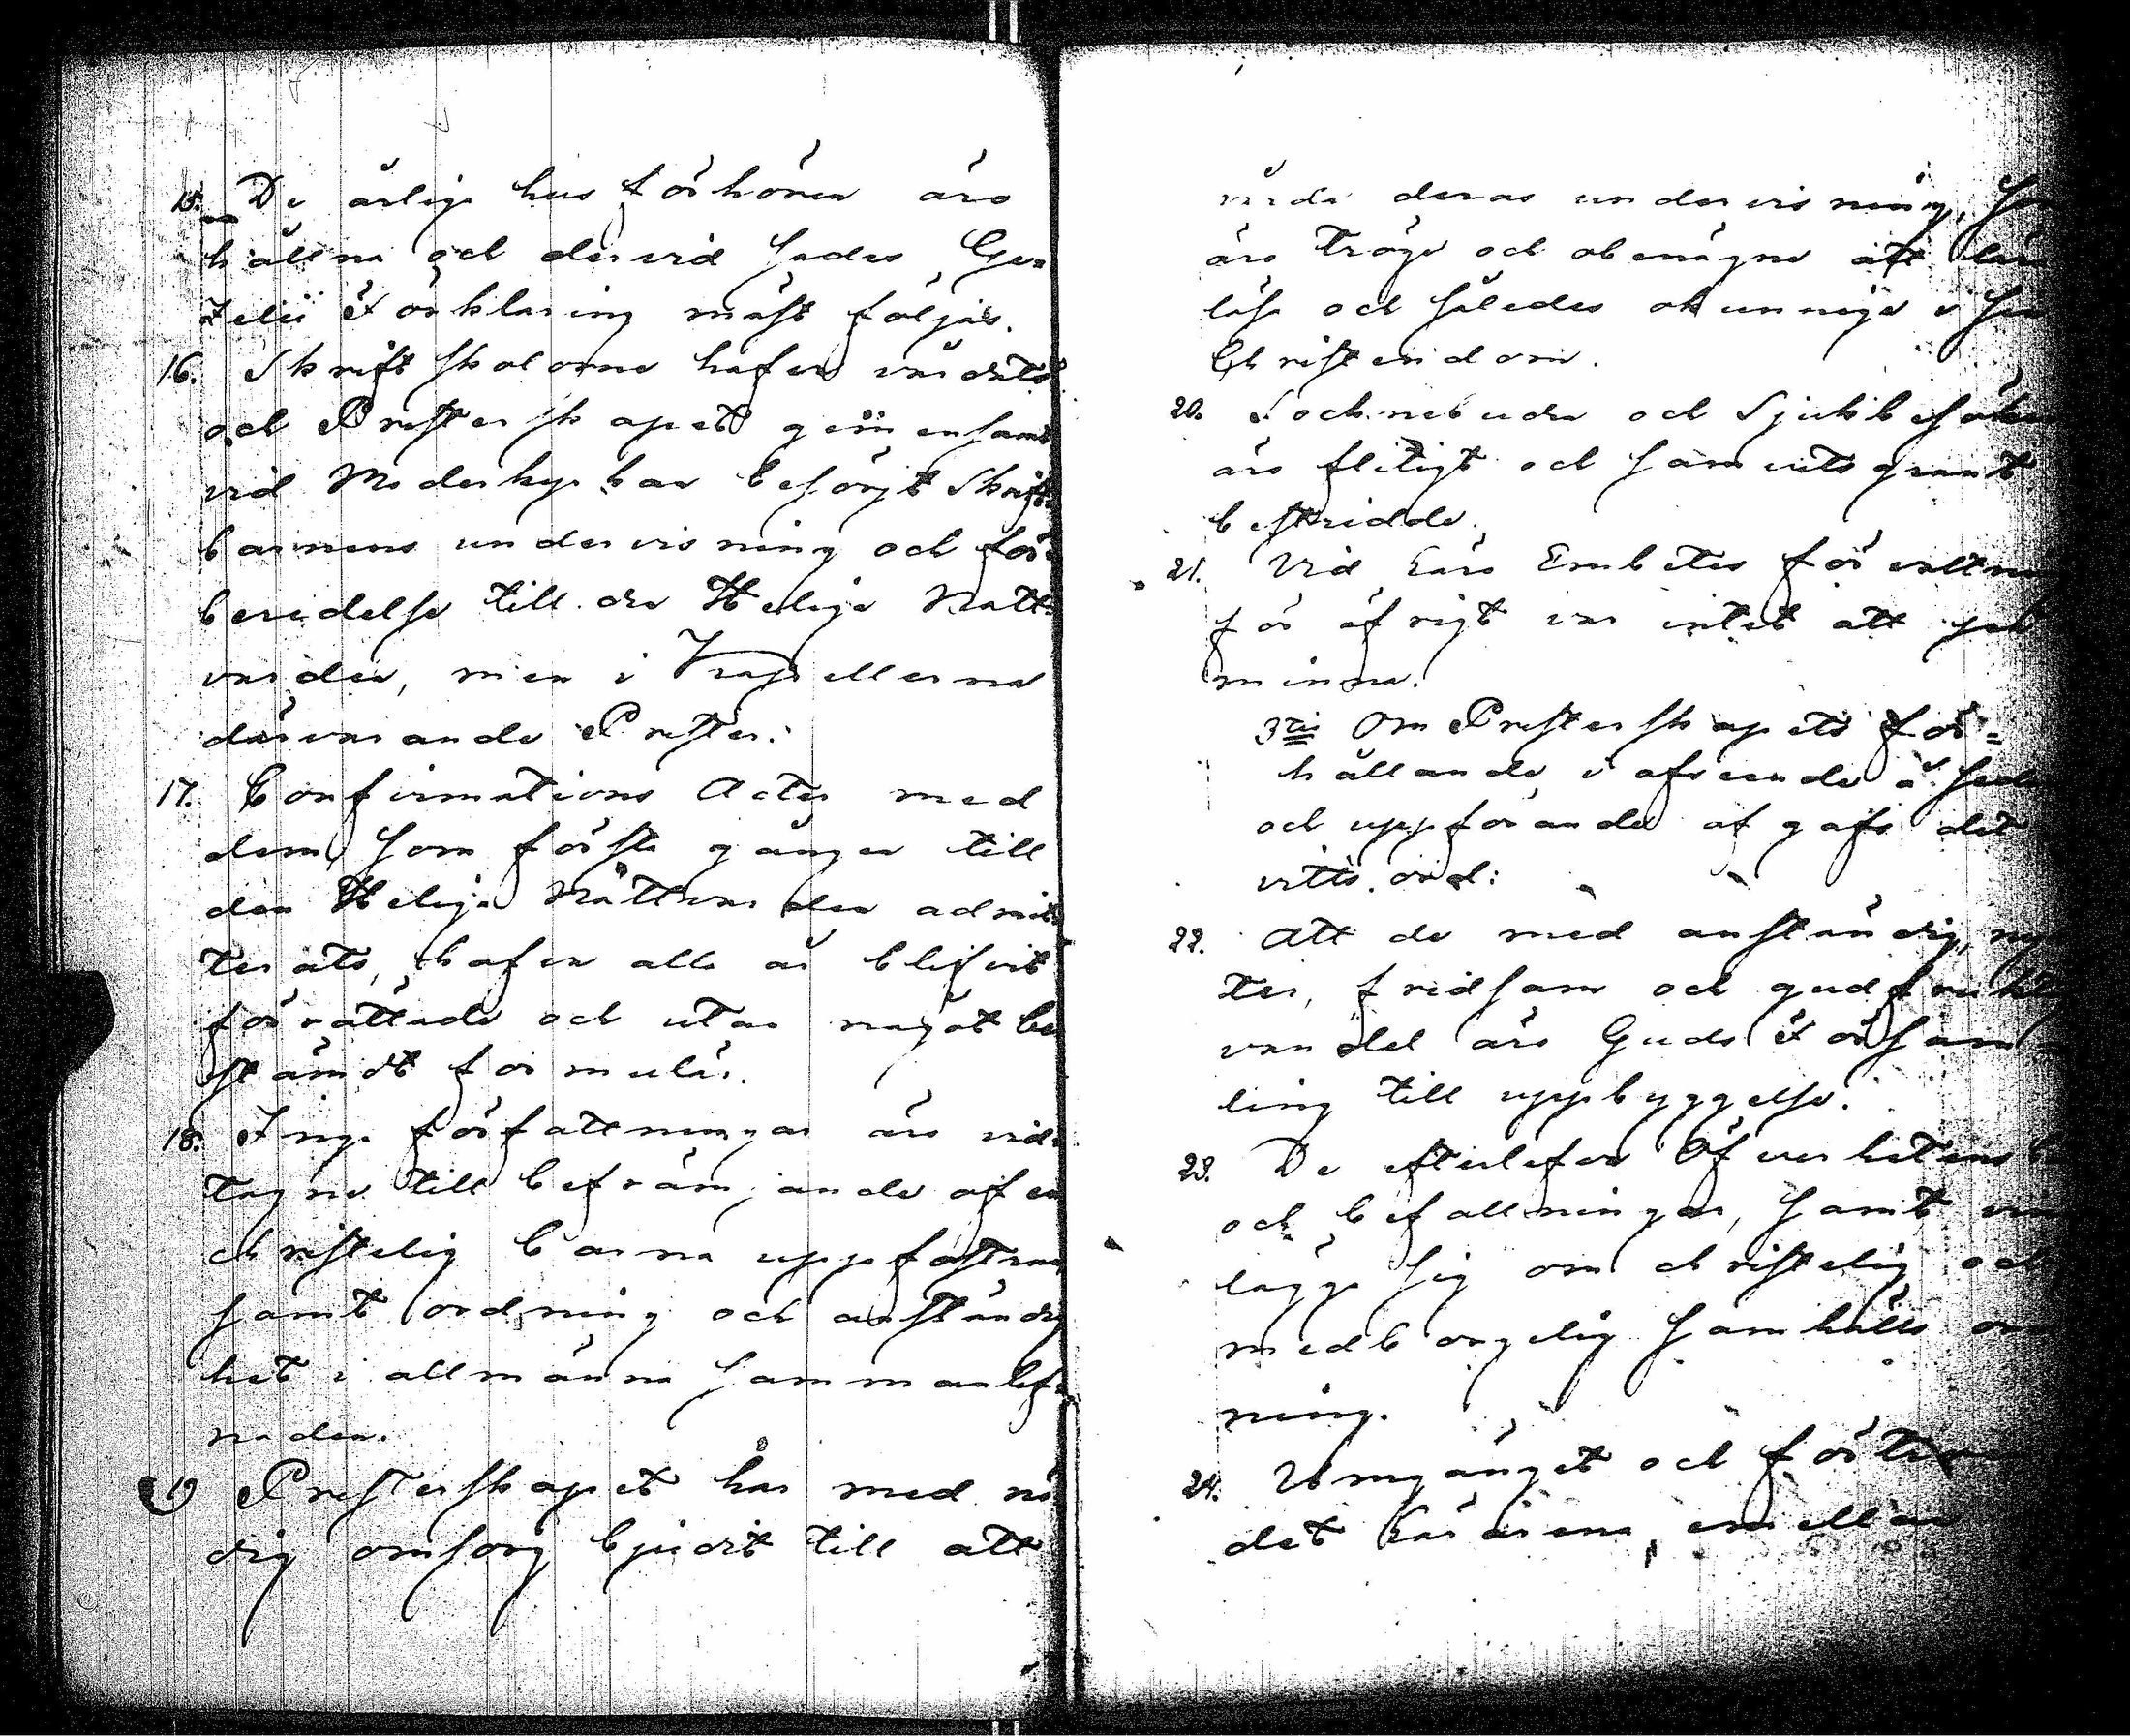 15. De årlige husförhören äro
hållna och dervid Jades Ge=
Zelii Förklaring mäst följas.
16. Skriftskolorne hafva vårdats
och Presterskapet gemensamt
vid Moderkyrkan besörgt Skrift
barnens undervisning och för
beredelse till den Heliga Natt=
varden, men i Kapellerna
därvarande Prester.
17. Confirmations Acter med
dem som första gången till
den Heliga Nattvarden admit
terats, hafva alla år blifvit
förrättade och utan något be
stämdt formulär.
18. Inga författningar äro vid
tagne till befrämjande af en
christelig barna uppfostran
samt ordning och anständig
het i allmänna sammanlef=
naden.
19 Presterskapet har med nö
dig omsorg bjudit till att
vårda deras undervisning,
äro tröga och obenägne att lära
läsa och således okunnige i sin
Christendom.
20. Socknebuden och Sjukbesöken
äro flitigt och samvetsgrant
bestridde.
21. Vid Läro Embetes förvaltning
för öfrigt var intet att på
minna.
3tio Om Presterskapets för=
hållande i afseende å seder
och uppförande afgafs det
vittsord:
22. Att de med anständig,
ter, fridsam och gudfruktig
vandel äro Guds Församl
ling till uppbyggelse.
23. De efterlefva Öfverhetens
och befallningar, samt vin
lägga sig om christelig och
medborgelig samhälls ord
ning.
24. Umgänget och förtroen
det Lärarena emellan